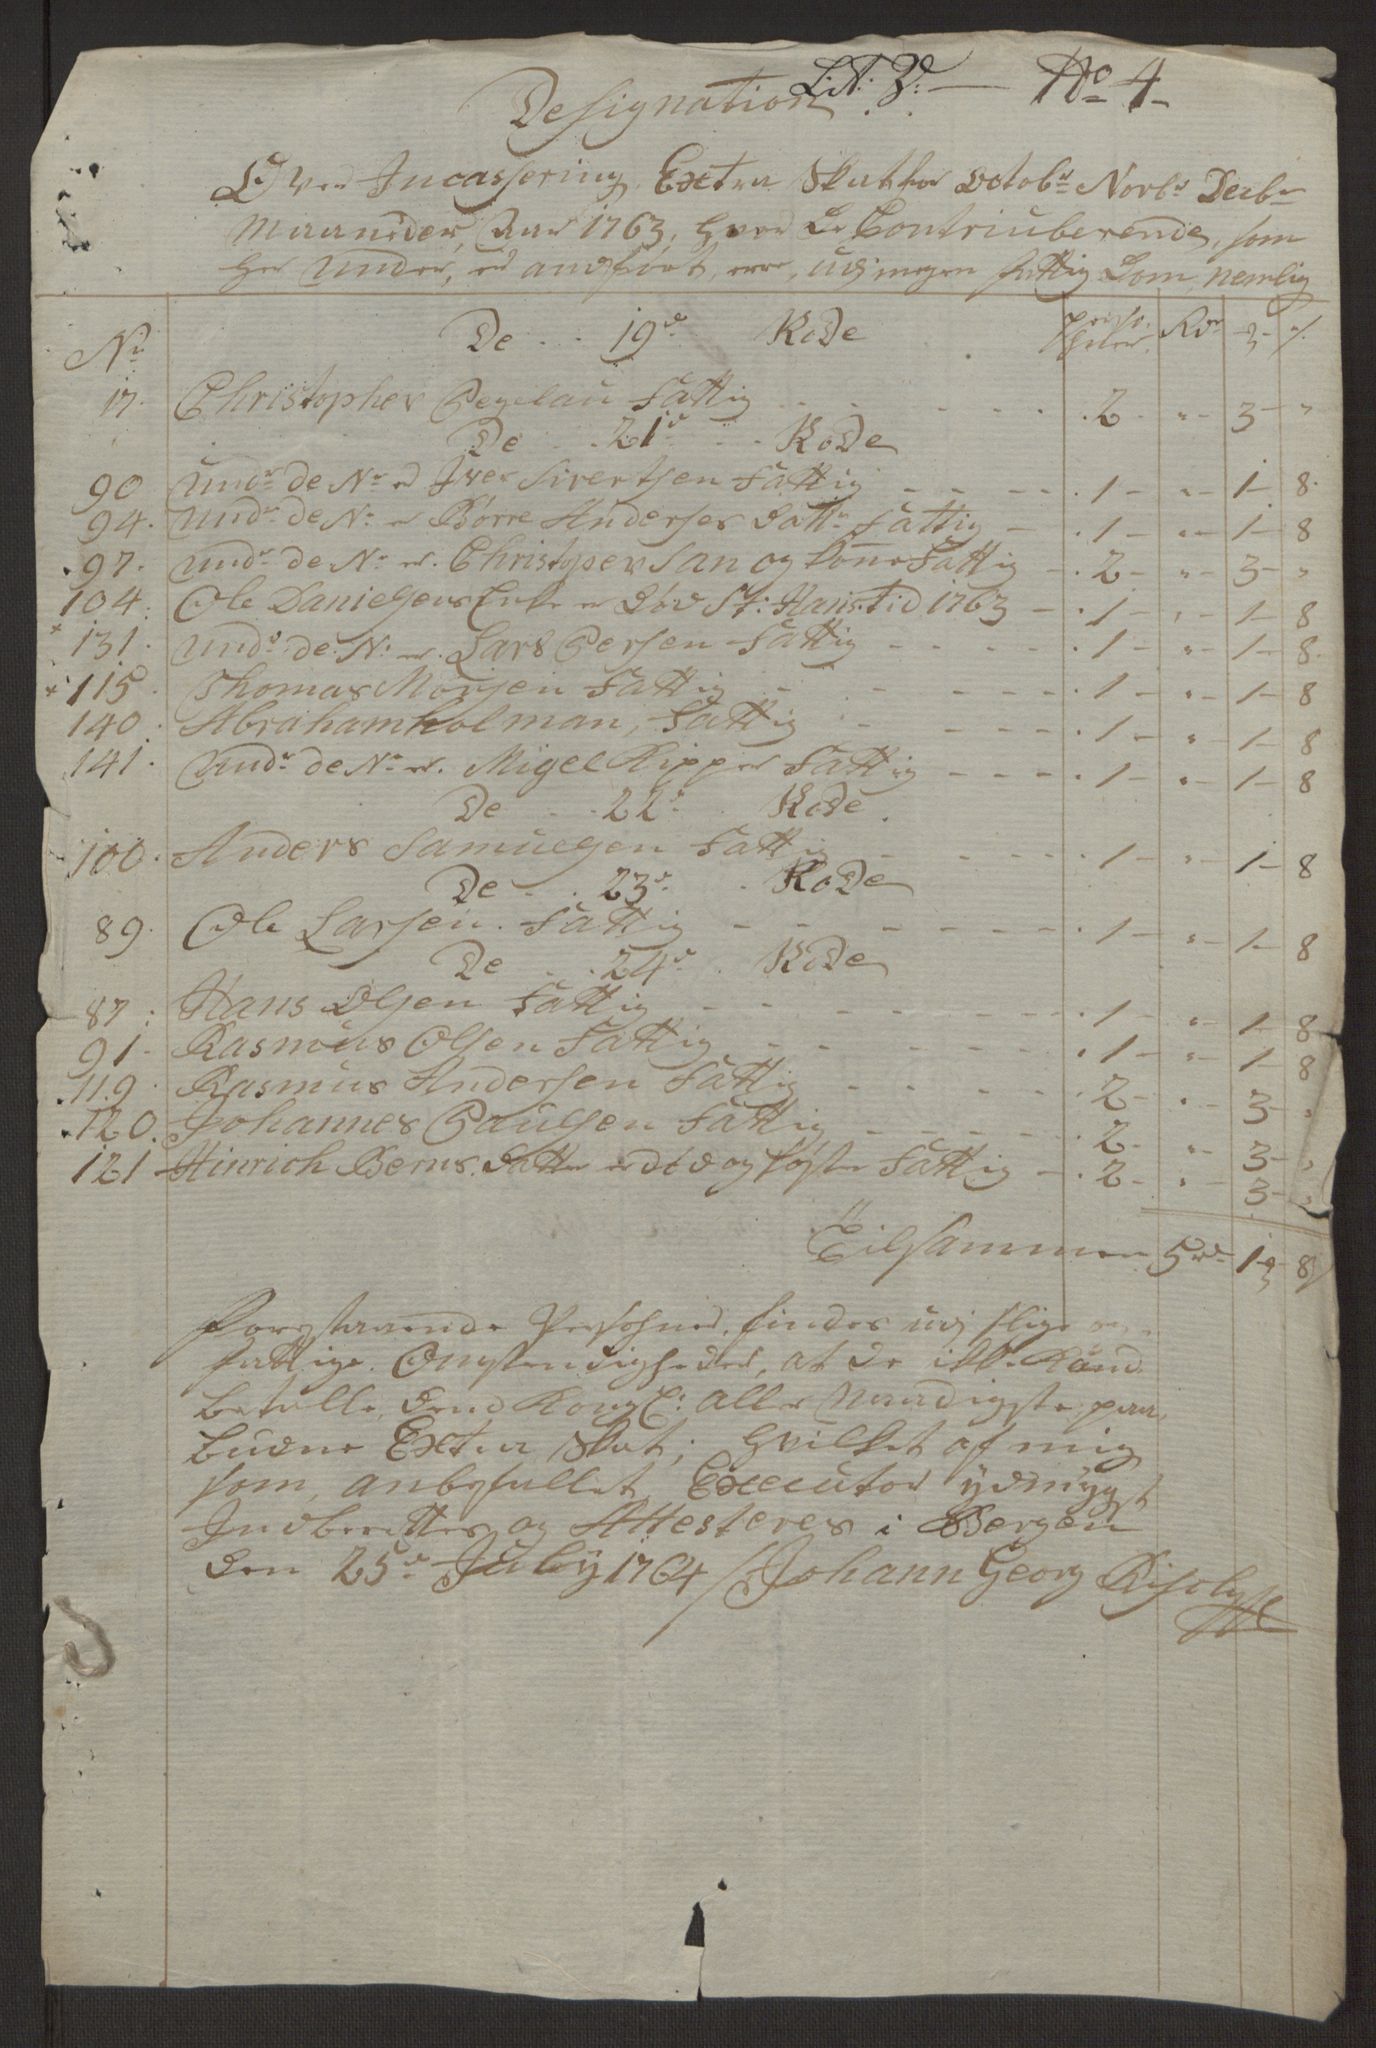 Lit: V: — No 4
Designation
Over Incassering Extra Skat for Octobr Novbr Decbr
Maaneder, Aar 1763, hvor De Contriuberende, som
her under, er andført, ere, udj megen fattig Dom, nemlig
Nr De 19de Rode Persohner Rdr 
17. Christopher Pegelau Fattig 2 " 3 "
De 21de Rode
90 Undr de Nr er Iver Sivertsen Fattig 1 " 1 8
94. Undr de Nr er Børre Anderses dattr Fattig 1 " 1 8
97. Undr de Nr er Christopersan og kone Fattig 2 " 3 "
104. Ole Danielsens Enke er død St: Hans tid 1763 1 " 1 8
131. Undr de Nr er Lars Persen Fattig 1 " 1 8
115. Thomas Monsen Fattig 1 " 1 8
140. Abraham holman, Fattig 1 " 1 8
141. Undr de Nr er Migel Kipper Fattig 1 " 1 8
De 22de Rode
100. Anders Samuelsen Fattig 1 " 1 8
De 23de Rode
89. Ole Larsen. Fattig 1 " 1 8
De 24de Rode
87. Hans Olsen Fattig 1 " 1 8
91. Rasmus Olsen Fattig 1 " 1 8
119. Rasmus Andersen Fattig 2 " 3 "
120. Johannes Paulsen Fattig 2 " 3 "
121 Hinrich Berns datter er død og søster Fattig 2 " 3 "
Tilsammen 5rd 1 8
Forestaaende Persohner, findes udj slige
fattige Omstendigheder, at de icke Kand
betalle, dend Kongl: aller Naadigste paa
budne Extra Skat, hvilket af mig
som anbefallet Executor ydmygst
Indberettes og Attesteres i Bergen
den 25de July 1764 Johann Georg